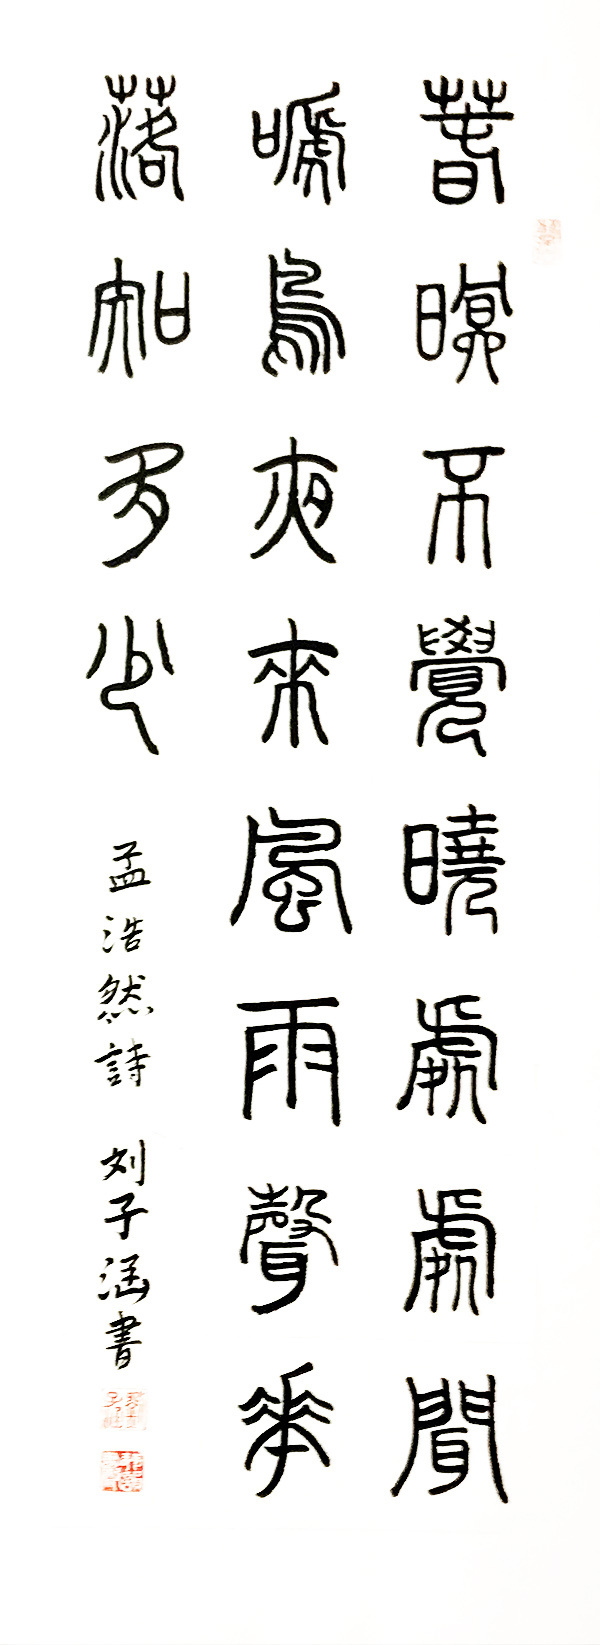 春眠不覺曉處處聞
嗁鳥夜來風雨聲花
落知多少 孟浩然詩 刘子涵書